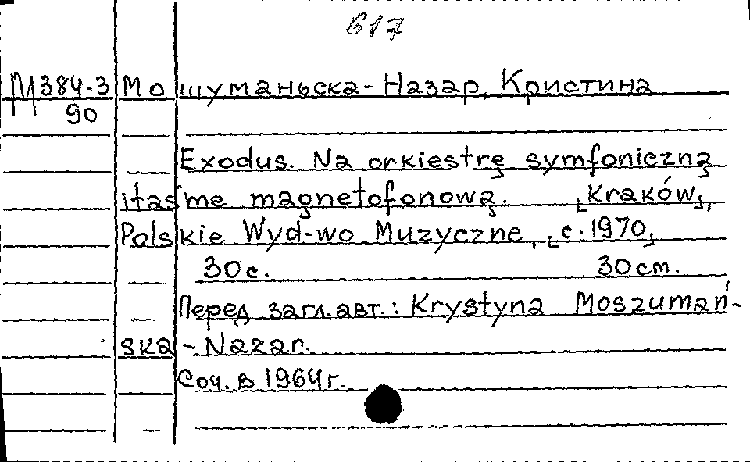 617
М384-3 Мошуманьска-Назар, Кристина
90
Exodus. Na orkiestrę symfoniczną
i taśmę magnetofonową. [Kraków],
Polskie Wyd-wo Muzyczne, [c. 1970]
30 с. 30 cm.
Перед загл. авт.: Krystyna Moszumań-
ska-Nazar.
Соч. в 1964 г.